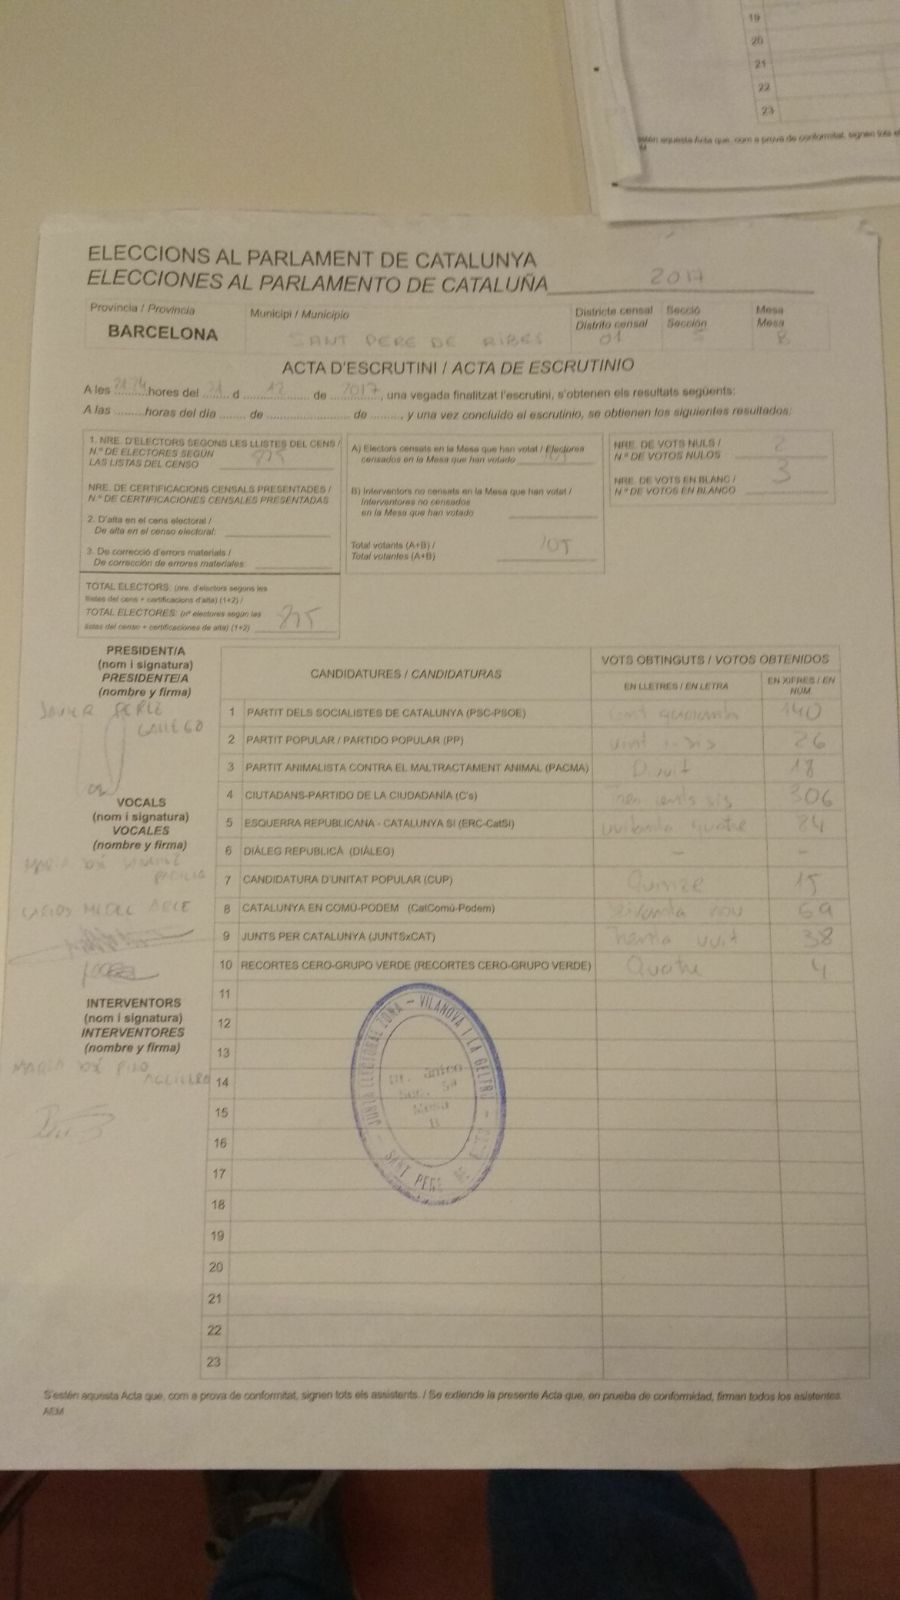 19
20
21
22
23
aquesta Acta que, com a prova de conformitat, signen tots
ELECCIONS AL PARLAMENT DE CATALUNYA
ELECCIONES AL PARLAMENTO DE CATALUÑA 2017
Província / Provincia
BARCELONA
Municipi / Municipio
SANT PERE DE RIBES
Districte censal
Distrito censal
01
Secció
Sección
Mesa
Mesa
B
ACTA D'ESCRUTINI / ACTA DE ESCRUTINIO
A les hores del 21 d 12 de 2017, una vegada finalitzat l'escrutini, s'obtenen els resultats següents:
A las ........horas del día ....... de ..................... de ........, y una vez concluido el escrutinio, se obtienen los siguientes resultados:
1. NRE. D'ELECTORS SEGONS LES LLISTES DEL CENS /
N.º DE ELECTORES SEGÚN
LAS LISTAS DEL CENSO 875
NRE. DE CERTIFICACIONS CENSALS PRESENTADES /
N.º DE CERTIFICACIONES CENSALES PRESENTADAS
2. D'alta en el cens electoral /
De alta en el censo electoral:
3. De correcció d'errors materials /
De corrección de errores materiales:
TOTAL ELECTORS: (nre. d'electors segons les
llistes del cens + certificacions d'alta) (1+2) /
TOTAL ELECTORES: (nº electores según las
listas del censo + certificaciones de alta) (1+2) 875
A) Electors censats en la Mesa que han votat / Electores
censados en la Mesa que han votado
B) Interventors no censats en la Mesa que han votat /
Interventores no censados
en la Mesa que han votado
Total votants (A+B) /
Total votantes (A+B) 705
NRE. DE VOTS NULS /
N.º DE VOTOS NULOS 2
NRE. DE VOTS EN BLANC /
N.º DE VOTOS EN BLANCO 3
PRESIDENT/A
(nom i signatura)
PRESIDENTE/A
(nombre y firma)
GALLEGO
VOCALS
(nom i signatura)
VOCALES
(nombre y firma)
MARIA JOSÉ
CARLOS
INTERVENTORS
(nom i signatura)
INTERVENTORES
(nombre y firma)
MARIA JOSÉ
CANDIDATURES / CANDIDATURAS
VOTS OBTINGUTS / VOTOS OBTENIDOS
EN LLETRES / EN LETRA
EN XIFRES / EN NÚM.
1 PARTIT DELS SOCIALISTES DE CATALUNYA (PSC-PSOE) Cent quaranta 140
2 PARTIT POPULAR / PARTIDO POPULAR (PP) vint i sis 26
3 PARTIT ANIMALISTA CONTRA EL MALTRACTAMENT ANIMAL (PACMA) Divuit 18
4 CIUTADANS-PARTIDO DE LA CIUDADANÍA (C's) Tres cents sis 306
5 ESQUERRA REPUBLICANA - CATALUNYA SÍ (ERC-CatSí) vuitanta quatre 84
6 DIÀLEG REPUBLICÀ (DIÀLEG) - -
7 CANDIDATURA D'UNITAT POPULAR (CUP) Quinze 15
8 CATALUNYA EN COMÚ-PODEM (CatComú-Podem) nou 69
9 JUNTS PER CATALUNYA (JUNTSxCAT) Trenta vuit 38
10 RECORTES CERO-GRUPO VERDE (RECORTES CERO-GRUPO VERDE) Quatre 4
11
12
13
14
15
16
17
18
19
20
21
22
23
JUNTA ELECTORAL ZONA - VILANOVA I LA GELTRÚ - SANT PERE DE RIBES
Mesa
B
S'estén aquesta Acta que, com a prova de conformitat, signen tots els assistents. / Se extiende la presente Acta que, en prueba de conformidad, firman todos los asistentes.